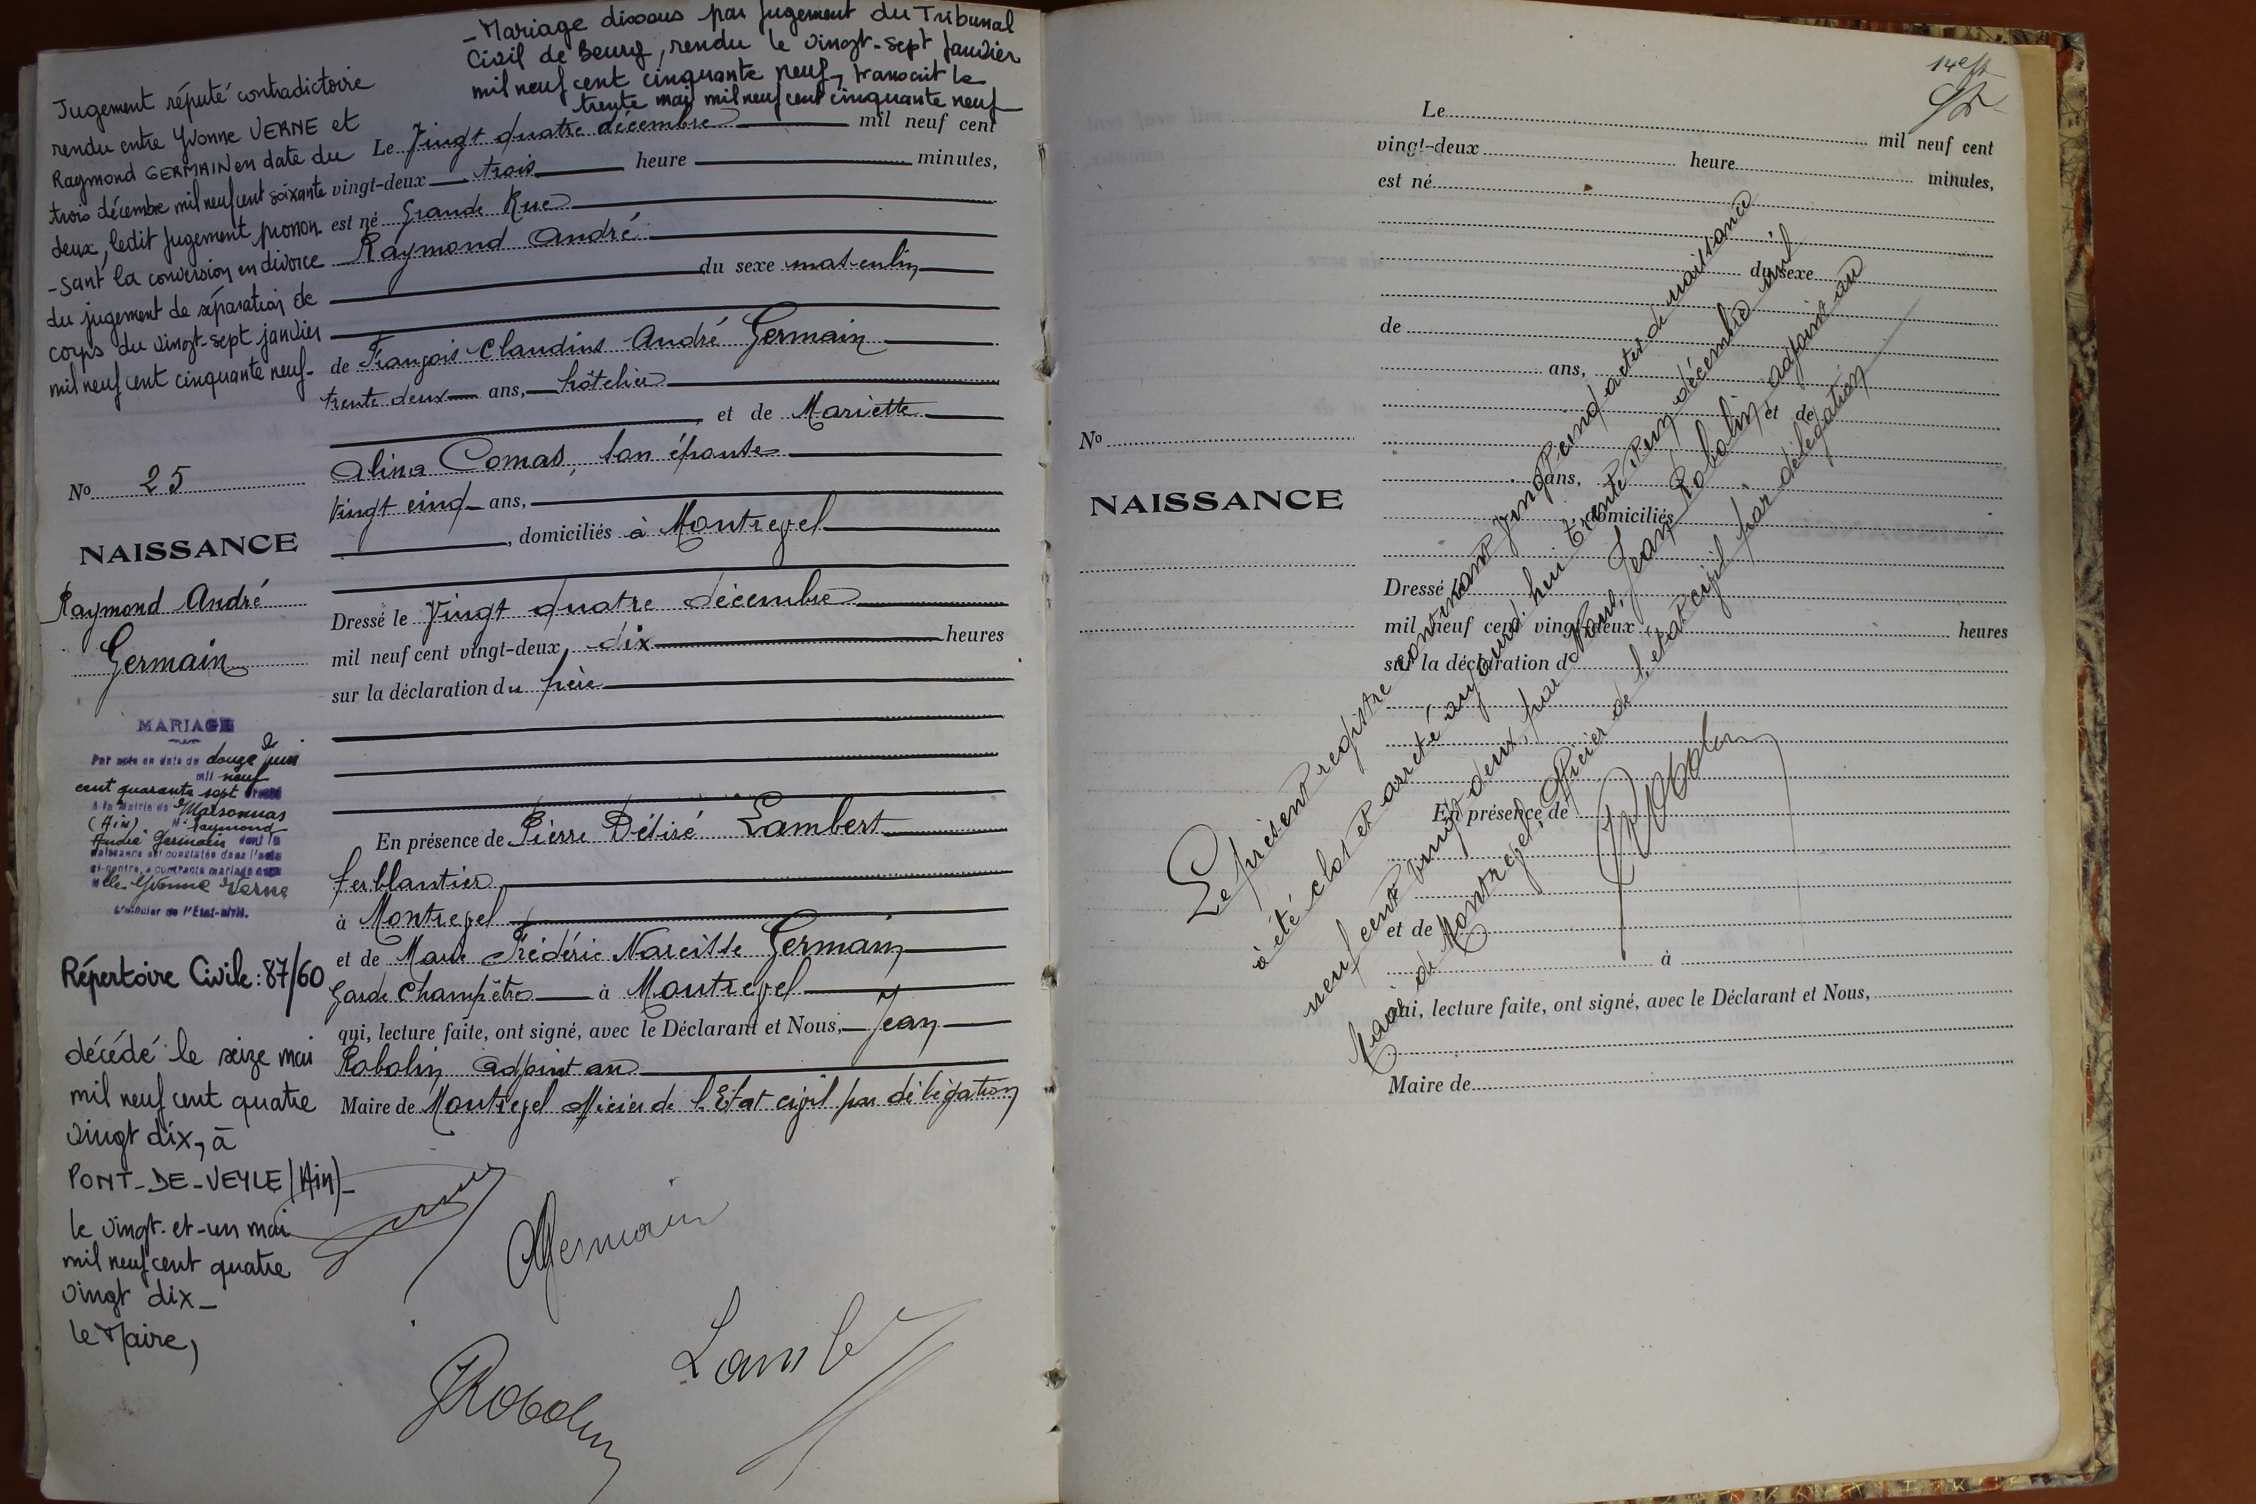 - Mariage dissous par jugement du Tribunal
Civil de Bourg, rendu le vingt-sept janvier
mil neuf cent cinquante neuf, transcrit le
trente mai mil neuf cent cinquante neuf
Jugement réputé contradictoire
rendu entre Yvonne VERNE et
Raymond GERMAIN en date du
trois décembre mil neuf cent soixante
deux, ledit jugement pronon
-sant la conversion en divorce
du jugement de séparation de
corps du vingt-sept janvier
mil neuf cent cinquante neuf-
No 25
NAISSANCE
Raymond André
Germain
MARIAGE
Par acte en date de douze juin
mil neuf
cent quarante sept
à la Mairie de Marsonnas
(Ain) Mr Raymond
André Germain dont la
naissance est constatée dans l'acte
ci-contre, a contracté mariage avec
Mlle Yvonne Verne
L'officier de l'Etat-civil.
Répertoire Civile : 87/60
décédé le seize mai
mil neuf cent quatre
vingt dix, à
PONT-DE-VEYLE (Ain)-
le vingt-et-un mai
mil neuf cent quatre
vingt dix -
le Maire,
Le Vingt quatre décembre mil neuf cent
vingt-deux trois heure minutes,
est né Grande Rue
Raymond André
du sexe masculin
de François Claudius André Germain
trente deux ans, hôtelier
et de Mariette
Alina Comas, son épouse
Vingt cinq ans,
, domiciliés à Montrevel
Dressé le Vingt quatre décembre
mil neuf cent vingt-deux, dix heures
sur la déclaration du père
En présence de Pierre Désiré Lambert
ferblantier
à Montrevel
et de Marie Frédéric Narcisse Germain
Garde Champêtre à Montrevel
qui, lecture faite, ont signé, avec le Déclarant et Nous, Jean
Robolin adjoint au
Maire de Montrevel officier de l'Etat civil par délégation
Germain
Lamb
JRobolin
14e ft
Le mil neuf cent
vingt-deux heure minutes,
est né
du sexe
de
ans,
et de
ans,
domiciliés
Dressé le
mil neuf cent vingt-deux heures
sur la déclaration d
En présence de
et de
à
qui, lecture faite, ont signé, avec le Déclarant et Nous,
Maire de
No
NAISSANCE
Le présent registre contenant vingt cinq actes de naissance
a été clos et arrêté aujourd'hui trente un décembre mil
neuf cent vingt deux, par Nous, Jean Robolin adjoint au
Maire de Montrevel, officier de l'état civil par délégation
JRobolin